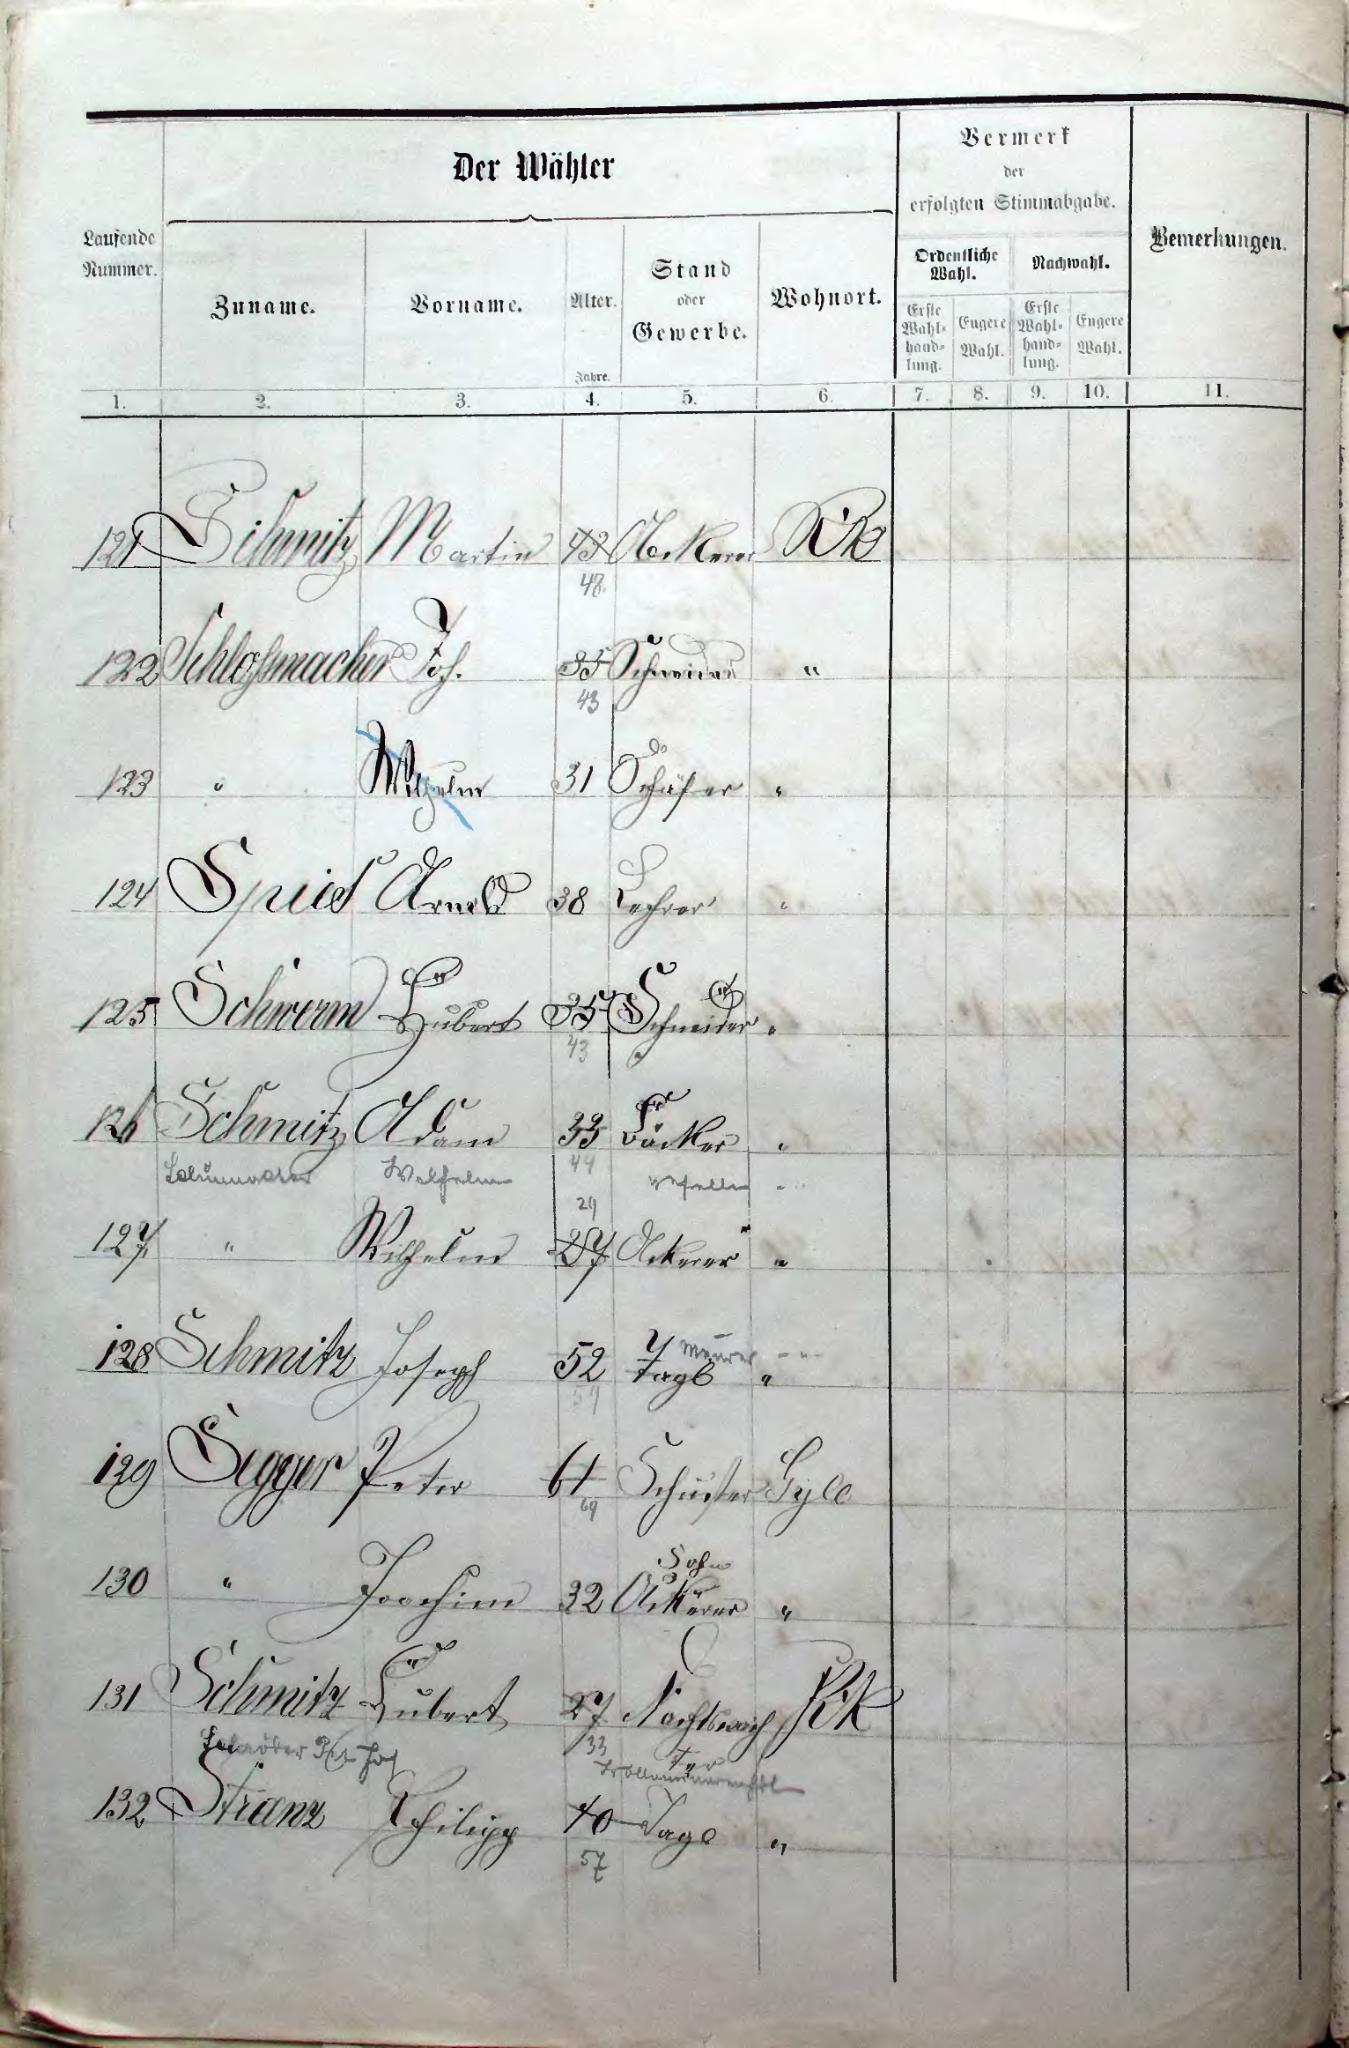 Der Wähler
Vermerk
der
erfolgten Stimmabgabe.
Laufende
Nummer.
Zuname.
Vorname.
Alter.
Jahre.
Stand
oder
Gewerbe.
Wohnort.
Ordentliche
Wahl.
Nachwahl.
Erste
Wahl-
hand-
lung.
Engere
Wahl.
Erste
Wahl-
hand-
lung.
Engere
Wahl.
Bemerkungen.
1. 2. 3. 4. 5. 6. 7. 8. 9. 10. 11.
121 Schmitz Martin 43 Ackerer
48
122 Schloßmacher Joh. 35 Schneider "
43
123 " Wilhelm 31 Schäfer "
124 Spies Arnold 38 Lehrer "
125 Schwerm Hubert 35 Schneider "
43
126 Schmitz Adam 33 Bäcker "
44
Wilhelm
29
127 " Wilhelm 27 Ackerer "
128 Schmitz Joseph 52 Tagl "
Maurer
59
129 Segger Peter 61 Schuster
69
Sohn
130 " Joachim 32 Ackerer "
131 Schmitz Hubert 27 Nachtswäch
33 ter
Schröder
132 Stranz Philipp 40 Tagl "
57